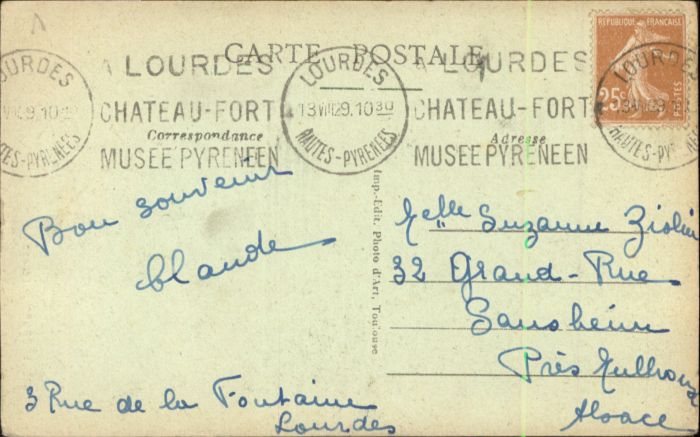 CARTE POSTALE
RÉPUBLIQUE FRANÇAISE
25c
A LOURDES
CHATEAU-FORT
MUSEE PYRENEEN
LOURDES
13 VIII 29. 10 30
HAUTES-PYRENEES
A LOURDES
CHATEAU-FORT
MUSEE PYRENEEN
Correspondance
Adresse
Bon souvenir
Claude
3 Rue de la Fontaine
Lourdes
Imp.-Edit. Photo d'Art, Toulouse
Melle Suzanne
32 Grand-Rue
Sausheim
Près Mulhouse
Alsace